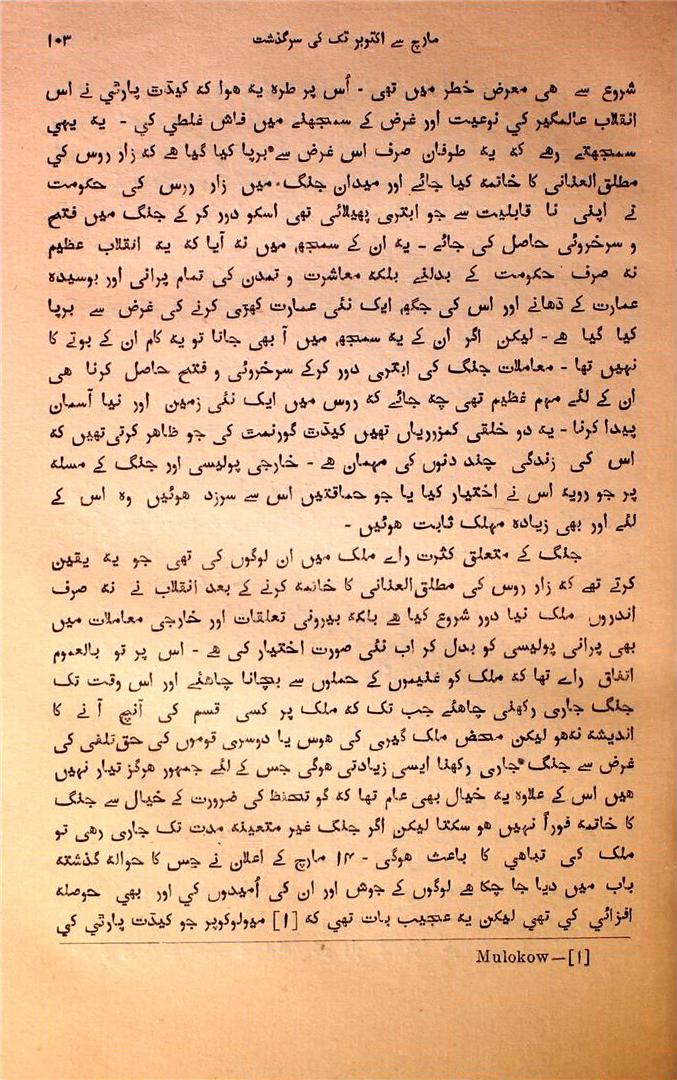 مارچ سے اکتوبر تک کی سرگذشت ۱۰۳
شروع سے ھی معرض خطر میں تھی - اُس پر طرہ یہ ھوا کہ کیڈٹ پارٹی نے اس
انقلاب عالمگیر کی نوعیت اور غرض کے سمجھنے میں فاش غلطی کی - یہ یہی
سمجھتے رھے کہ یہ طوفان صرف اس غرض سے برپا کیا گیا ھے کہ زار روس کی
مطلق العنانی کا خاتمہ کیا جائے اور میدان جنگ میں زار روس کی حکومت
نے اپنی نا قابلیت سے جو ابتری پھیلائی تھی اسکو دور کر کے جنگ میں فتح
و سرخروئی حاصل کی جائے - یہ ان کے سمجھ میں نہ آیا کہ یہ انقلاب عظیم
نہ صرف حکومت کے بدلنے بلکہ معاشرت و تمدن کی تمام پرانی اور بوسیدہ
عمارت کے ڈھانے اور اس کی جگہ ایک نئی عمارت کھڑی کرنے کی غرض سے برپا
کیا گیا ھے - لیکن اگر ان کے یہ سمجھ میں آ بھی جاتا تو یہ کام ان کے بوتے کا
نہیں تھا - معاملات جنگ کی ابتری دور کرکے سرخروئی و فتح حاصل کرنا ھی
ان کے لئے مہم عظیم تھی چہ جائے کہ روس میں ایک نئی زمین اور نیا آسمان
پیدا کرنا - یہ دو خلقی کمزوریاں تھیں کیڈٹ گورنمنت کی جو ظاھر کرتی تھیں کہ
اس کی زندگی چند دنوں کی مہمان ھے - خارجی پولیسی اور جنگ کے مسلہ
پر جو رویہ اس نے اختیار کیا یا جو حماقتیں اس سے سرزد ھوئیں وہ اس کے
لئے اور بھی زیادہ مہلک ثابت ھوئیں -
جنگ کے متعلق کثرت راے ملک میں ان لوگوں کی تھی جو یہ یقین
کرتے تھے کہ زار روس کی مطلق العنانی کا خاتمہ کرنے کے بعد انقلاب نے نہ صرف
اندروں ملک نیا دور شروع کیا ھے بلکہ بیرونی تعلقات اور خارجی معاملات میں
بھی پرانی پولیسی کو بدل کر اب نئی صورت اختیار کی ھے - اس پر تو بالعموم
اتفاق راے تھا کہ ملک کو غنیموں کے حملوں سے بچانا چاھئے اور اس وقت تک
جنگ جاری رکھنی چاھئے جب تک کہ ملک پر کسی قسم کی آنچ آ نے کا
اندیشہ نہھو لیکن محض ملک گیری کی ھوس یا دوسری قوموں کی حق تلفی کی
غرض سے جنگ جاری رکھنا ایسی زیادتی ھوگی جس کے لئے جمہور ھرگز تیار نہیں
ھیں اس کے علاوہ یہ خیال بھی عام تھا کہ گو تحفظ کی ضرورت کے خیال سے جنگ
کا خاتمہ فوراً نہیں ھو سکتا لیکن اگر جنگ غیر متعینہ مدت تک جاری رھی تو
ملک کی تباھی کا باعث ھوگی - ۱۴ مارچ کے اعلان نے جس کا حوالہ گذشتہ
باب میں دیا جا چکا ھے لوگوں کے جوش اور ان کی اُمیدوں کی اور بھی حوصلہ
افزائی کی تھی لیکن یہ عجیب بات تھی کہ [۱] میولوکوپر جو کیڈٹ پارٹی کی
Mulokow—[۱]